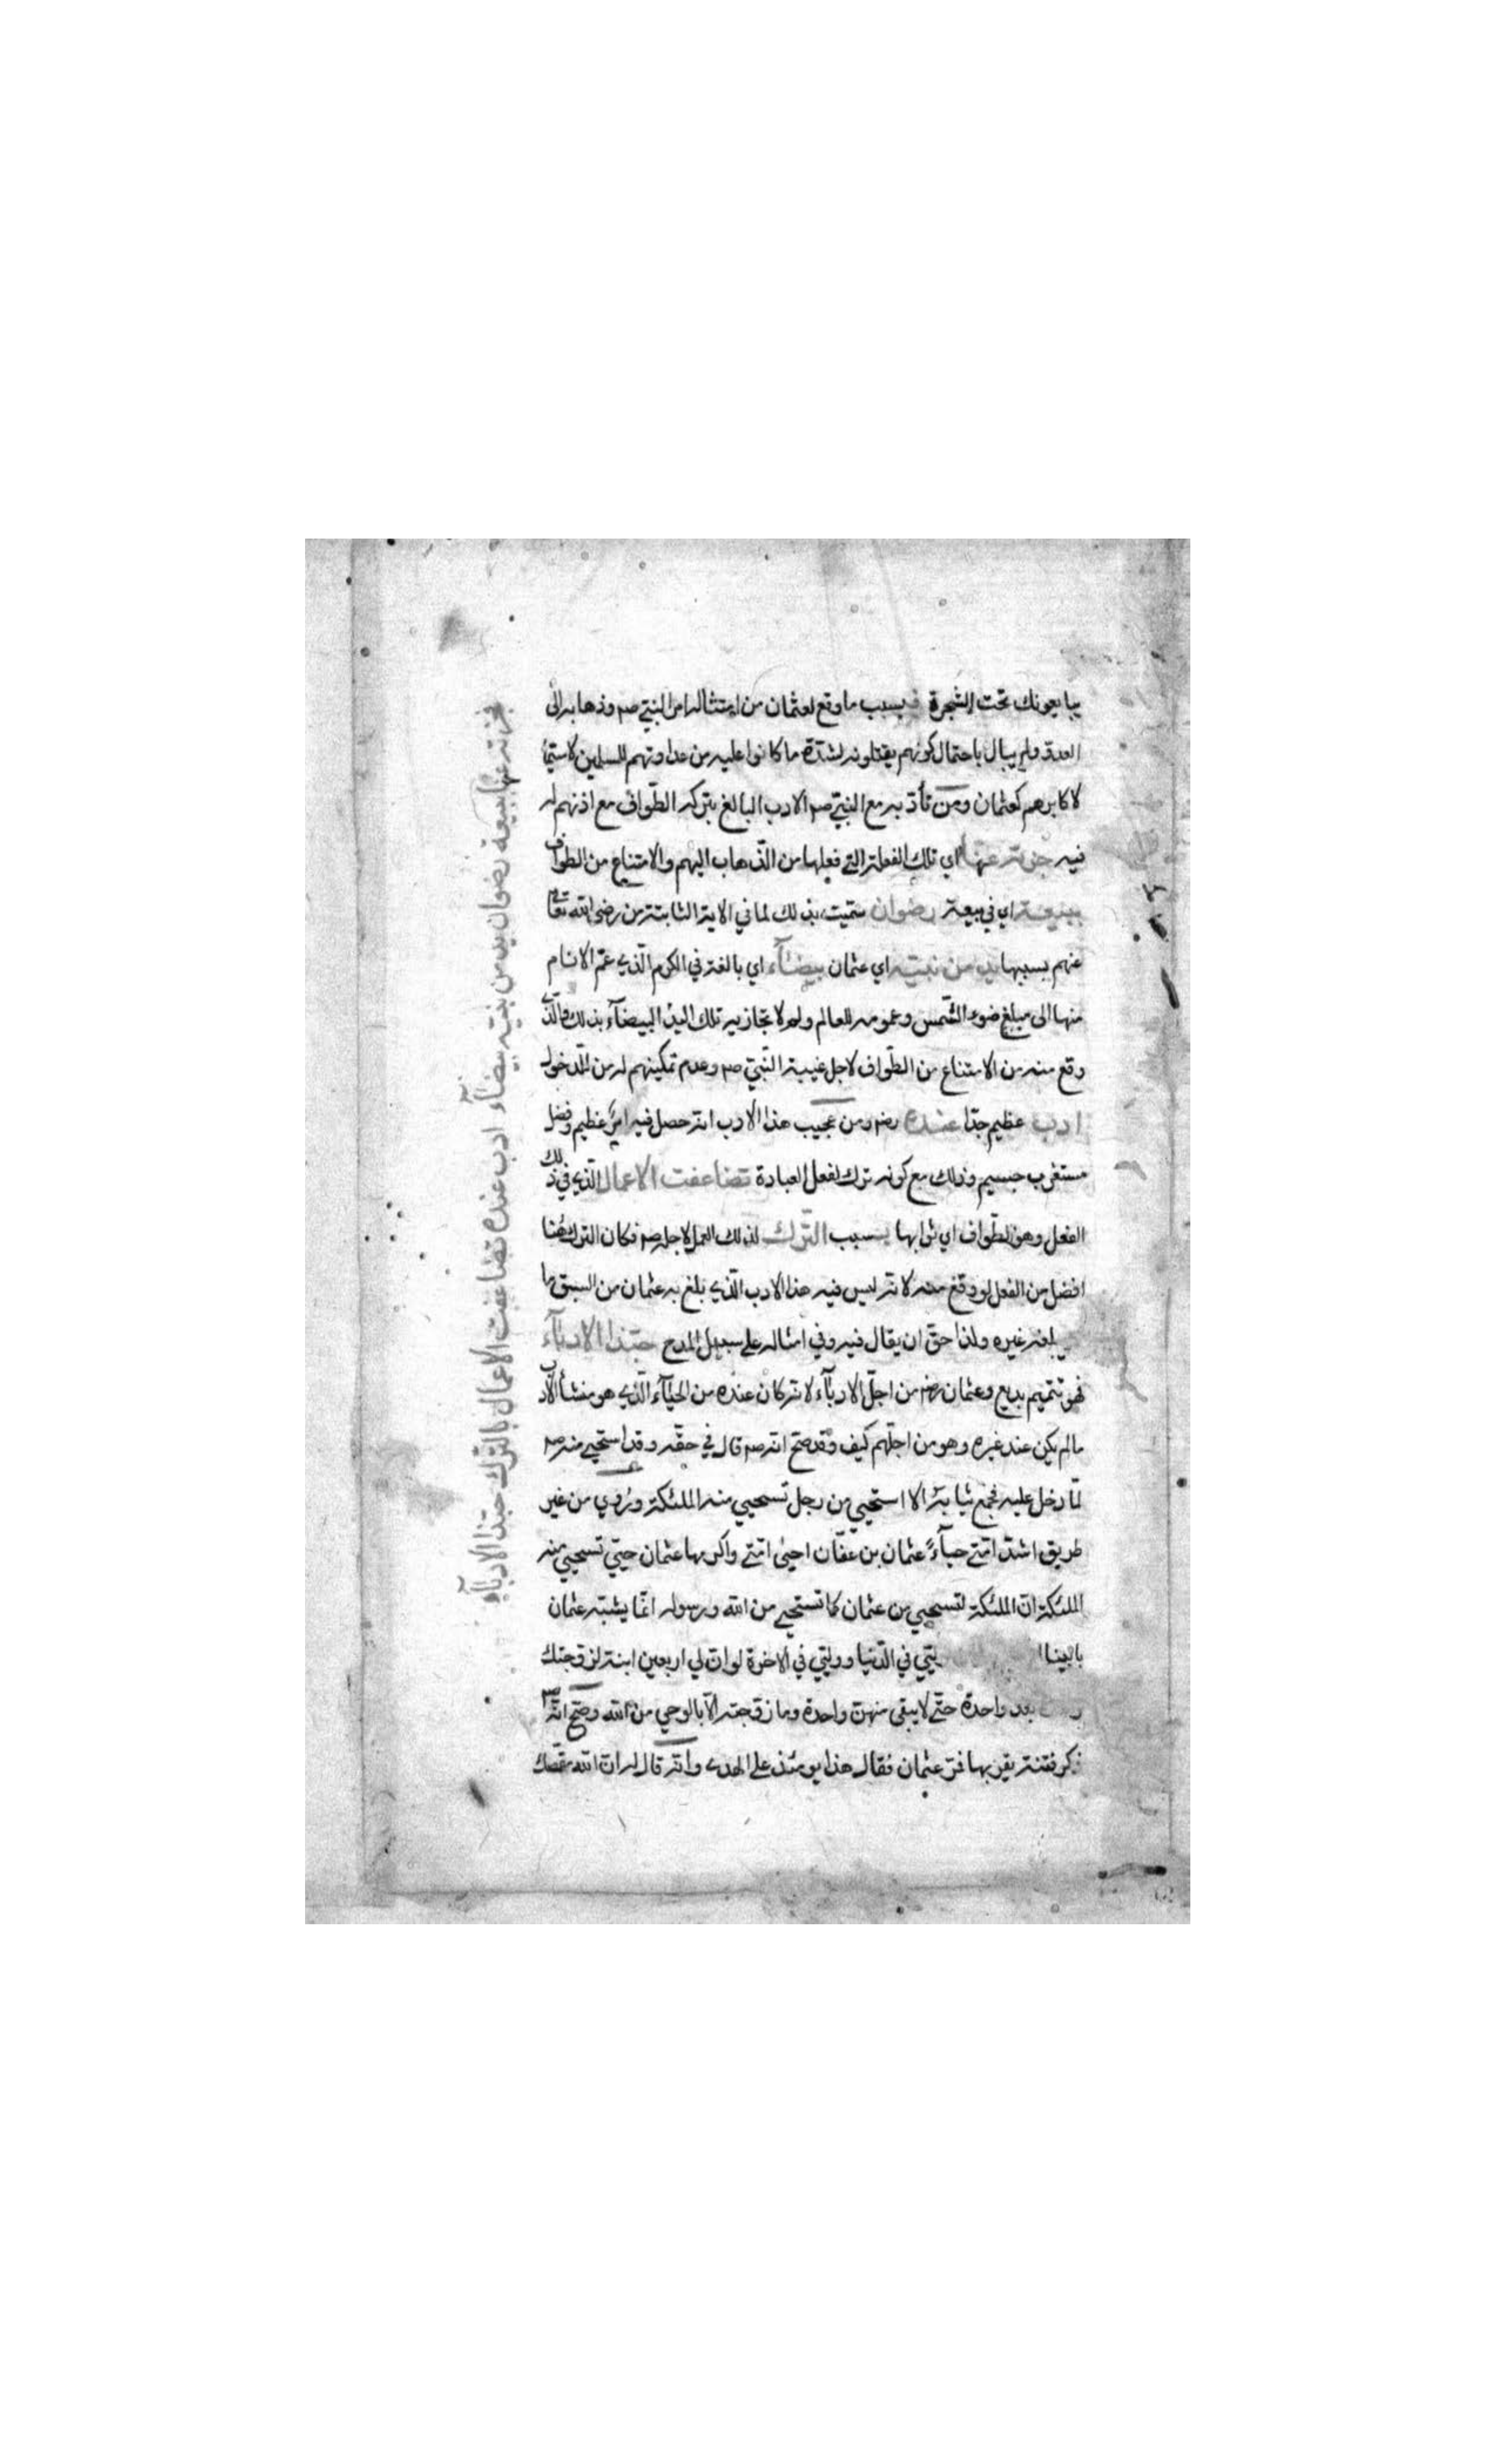 يبايعونك تحت الشجرة فبسبب ما وقع لعثمان من امتثاله امر النبي صم وذهابه الى
العدو ولم يبال باحتمال كونهم يقتلونه لشدة ما كانوا عليه من عداوتهم للمسلمين لا سيما
لاكابرهم كعثمان ومن تأدبه مع النبي صم الادب البالغ بتركه الطواف مع اذنهم له
فيه جزته عنها اي تلك الفعلة التي فعلها من الذهاب اليهم والامتناع من الطواف
ببيعة اي في بيعة رضوان سميت بذلك لما في الاية الثابتة من رضى الله تعالى
عنهم بسببها يد من نبيه اي عثمان بيضآء اي بالغة في الكرم الذي عم الانام
منها الى مبلغ ضوء الشمس وعمومه للعالم ولم لا تجازيه تلك اليد البيضآء بذلك والذي
وقع منه من الامتناع من الطواف لاجل غيبة النبي صم وعدم تمكينهم له من الدخول
ادب عظيم جدا عنده رضم ومن عجيب هذا الادب انه حصل فيه امر عظيم وفضل
مستغرب جسيم وذلك مع كونه ترك لفعل العبادة تضاعفت الاعمال الذي في ذلك
الفعل وهو الطواف اي ثوابها بسبب الترك لذلك العمل لاجله صم فكان الترك هنا
افضل من الفعل لو وقع منه لانه ليس فيه هذا الادب الذي بلغ به عثمان من السبق ما
يبلغه غيره ولذا حق ان يقال فيه وفي امثاله على سبيل المدح حبذا الادبآء
فهو تتميم بديع وعثمان رضم من اجل الادبآء لانه كان عنده من الحيآء الذي هو منشأ الادب
ما لم يكن عند غيره وهو من اجلهم كيف وقد صح انه صم قال في حقه وقد استحيى منه صم
لما دخل عليه فجمع ثيابه الا استحيي من رجل تستحيي منه الملئكة وروي من غير
طريق اشد امتي حيآءً عثمان بن عفان احيى امتي واكرمها عثمان حيي تستحيي منه
الملئكة ان الملئكة لتستحيي من عثمان كما تستحيي من الله ورسوله انما يشبه عثمان
بابينا وليي في الدنيا ووليي في الاخرة لو ان لي اربعين ابنة لزوجتك
بعد واحدة حتى لا يبقى منهن واحدة وما زوجته الا بالوحي من الله وصح انه صم
ذكر فتنة يقربها فمر عثمان فقال هذا يومئذ على الهدى وانه قال له ان الله يقمصك
جزته عنها ببيعة رضوان يد من نبيه بيضآء ادب عنده تضاعفت الاعمال بالترك حبذا الادبآء